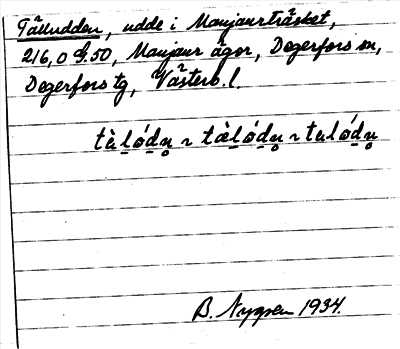 Tälludden, udde i Manjaurträsket,
216,0 G.50, Manjaur ägor, Degerfors sn,
Degerfors tg, Västerb. l.
tàl̲ó́d̲n̥ ~ tæ̀l̲ó́d̲n̥ ~ tul̲ó́d̲n̥
B. Nygren 1934.